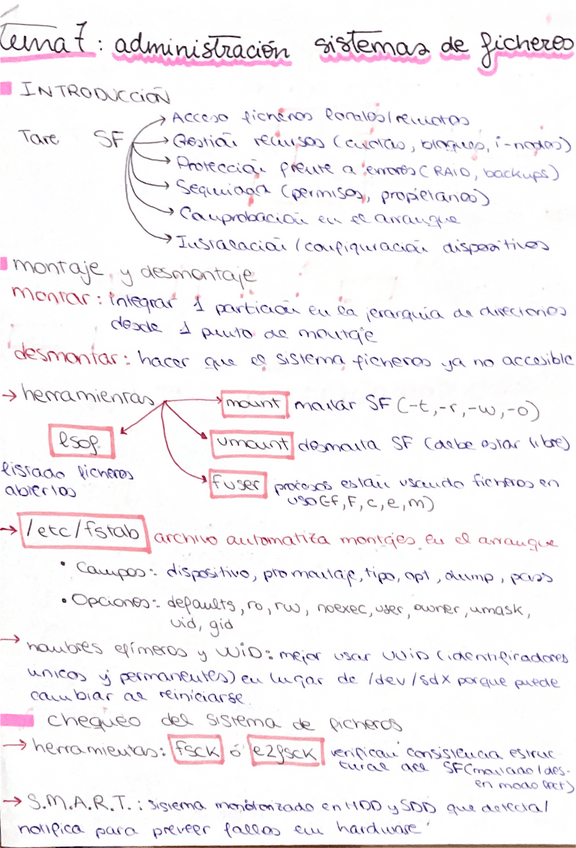 Tema 7: administración sistemas de ficheros
INTRODUCCIÓN
Acceso ficheros locales/remotos
Tare SF Gestión recursos (cuotas, bloques, i-nodos)
Protección frente a errores (RAID, backups)
(permisos, propietarios)
Comprobación en el arranque
Instalación/configuración dispositivos
montaje y desmontaje
montar: integrar 1 partición en la jerarquía de
desde 1 punto de montaje
desmontar: hacer que el sistema ficheros ya no accesible
→ herramientas mount montar SF (-t,-r,-w,-o)
lsof umount desmonta SF (debe estar libre)
listado ficheros
abiertos
fuser procesos están usando ficheros en
uso (-f, F, c, e, m)
→ /etc/fstab archivo automatiza montajes en el arranque
• Campos: dispositivo, pto montaje, tipo, opt, dump, pass
• Opciones: defaults, ro, rw, noexec, user, owner, umask,
uid, gid
→ nombres efímeros y UUID: mejor usar UUID (identificadores
únicos y permanentes) en lugar de /dev/sdX porque puede
cambiar al reiniciarse
chequeo del sistema de ficheros
→ herramientas: fsck ó e2fsck verifican consistencia estruc
tural del SF (montado/des-
en modo
→ S.M.A.R.T.: sistema en HDD y SDD que detecta/
notifica para preveer fallos en hardware